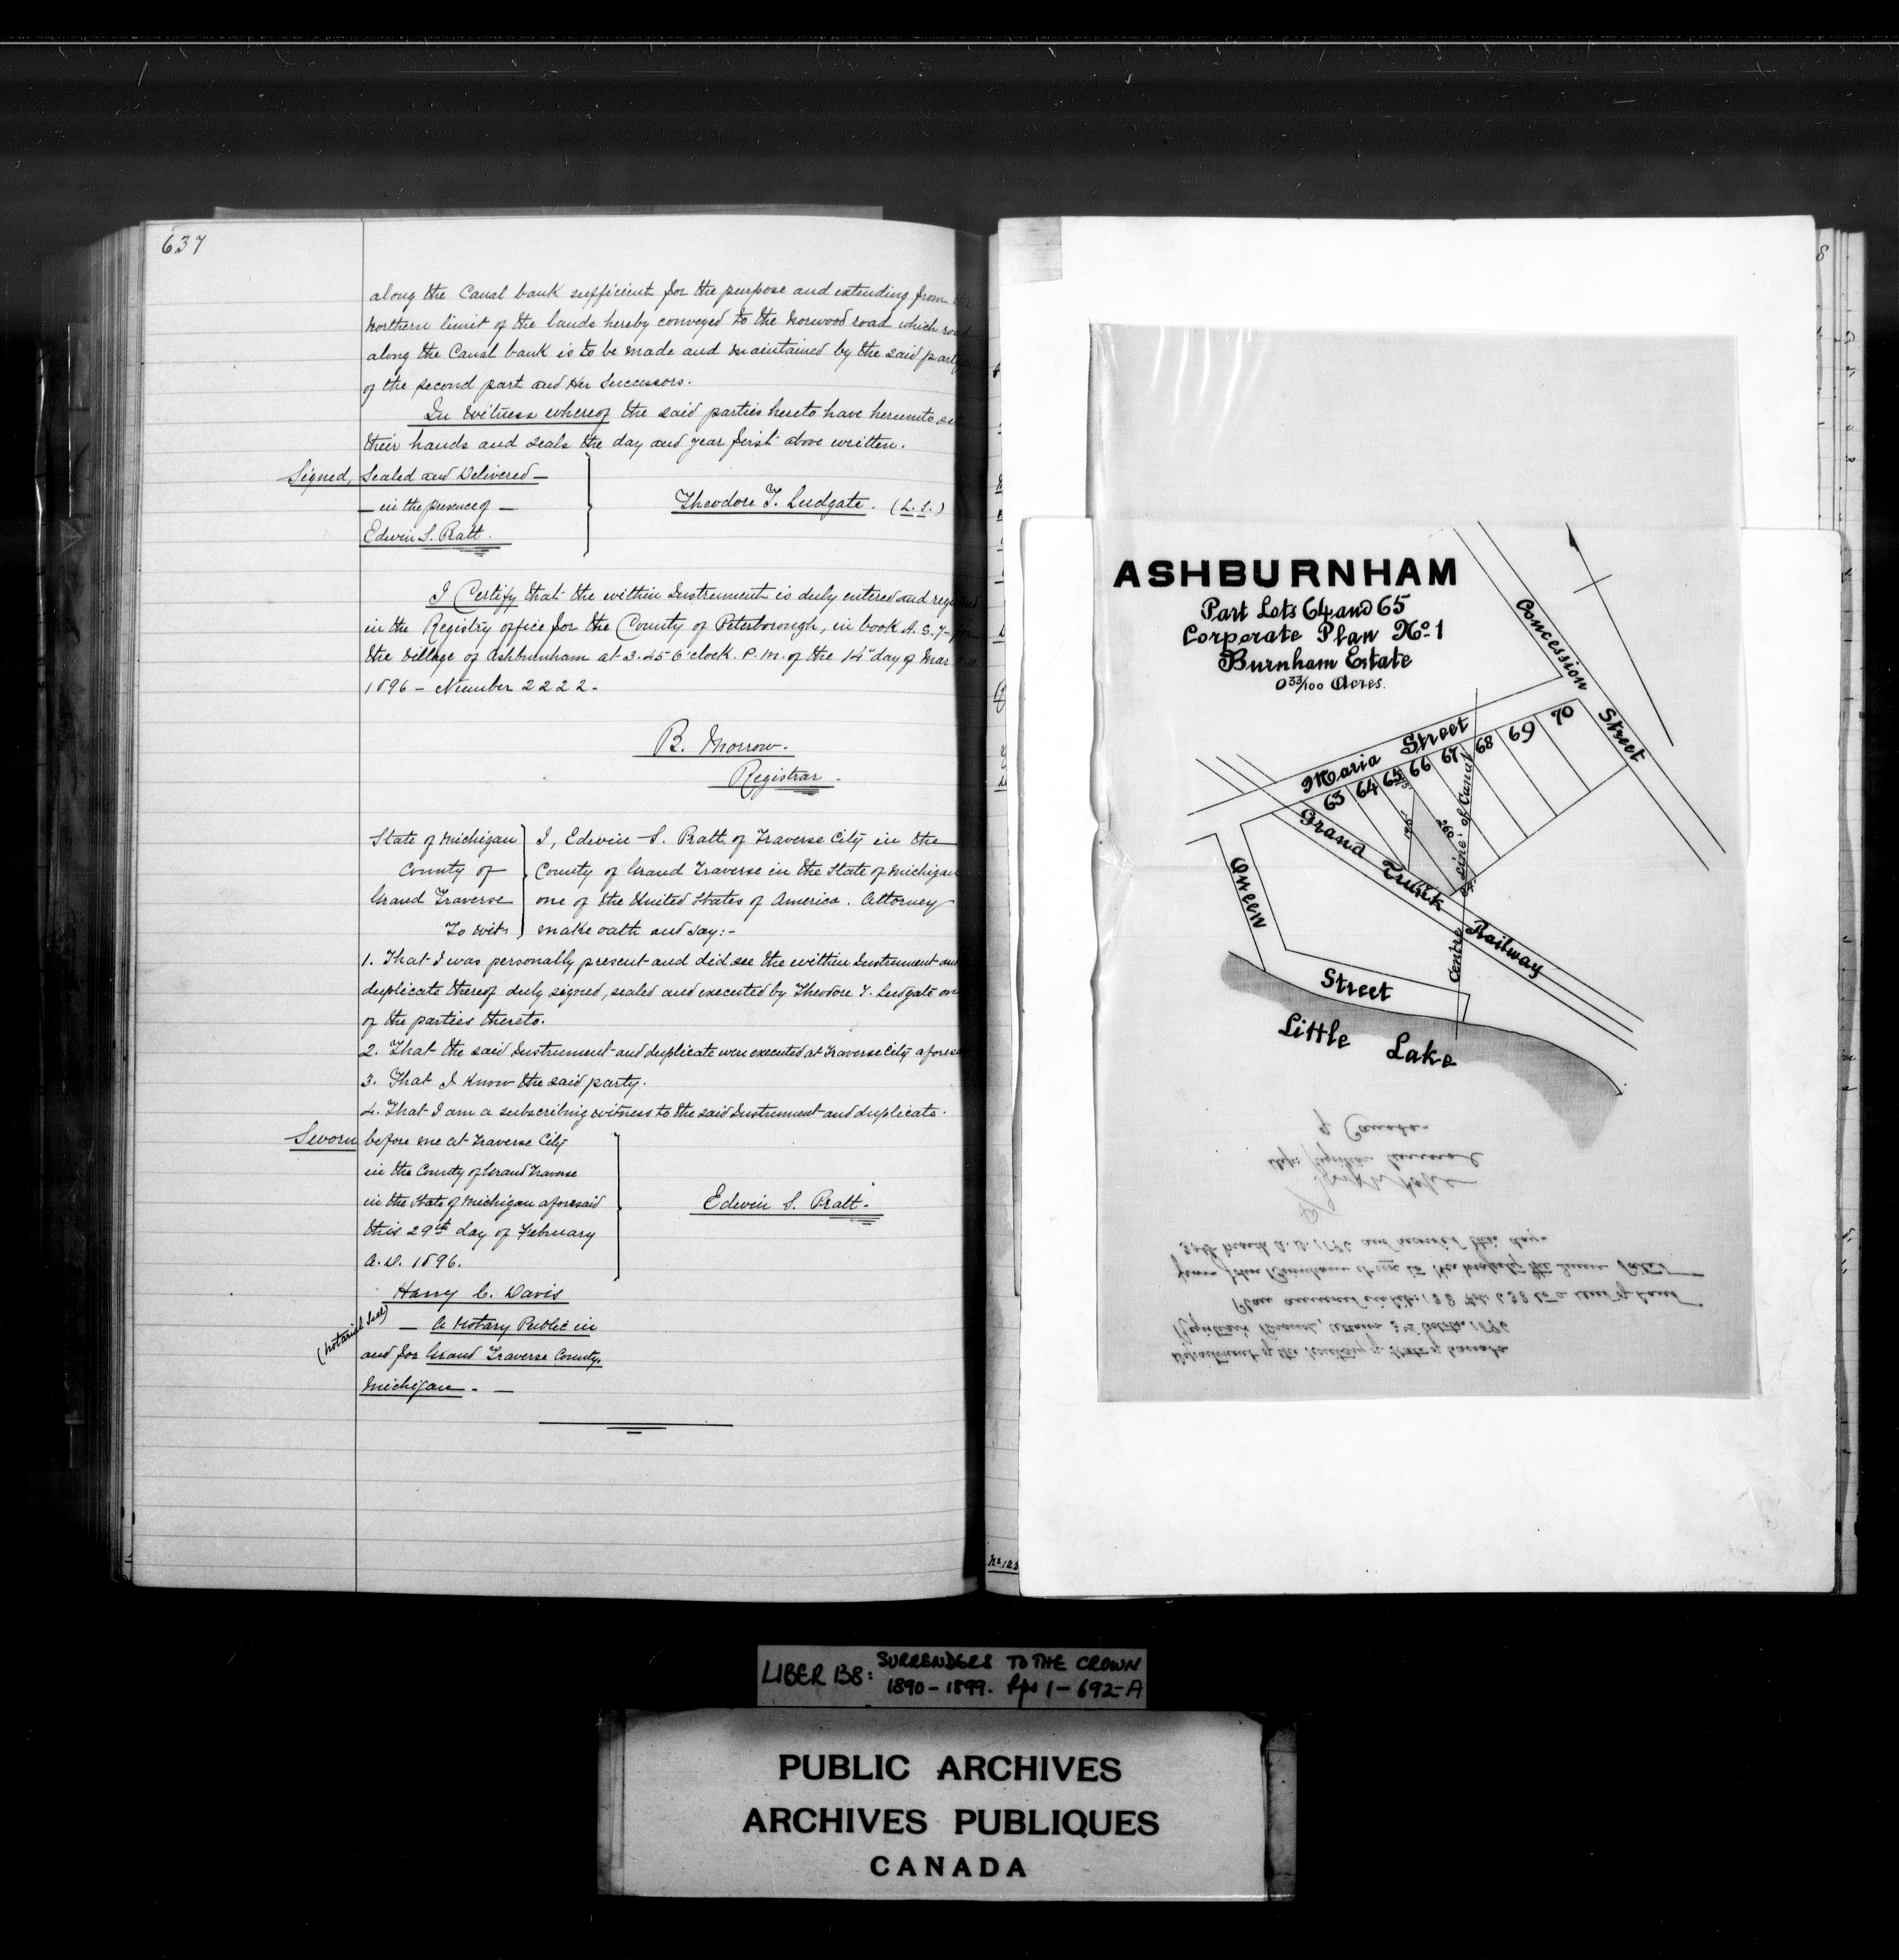 637
along the Canal bank sufficient for the purpose and extending from
Northern limit of the lands hereby conveyed to the Norwood road which
along the Canal bank is to be made and maintained by the said party
of the second part and Her Successors.
In Witness whereof the said parties hereto have hereunto set
their hands and seals the day and year first above written.
Signed, Sealed and Delivered —
— in the presence of —
Edwin S. Pratt.
Theodore T. Ludgate. (L.S.)
I Certify that the within Instrument is duly entered and
in the Registry office for the County of Peterborough, in book A. S. 7
the Village of Ashburnham at 3.45 O'clock. P.M. of the 14" day of Mar
1896 - Number 2222.
B. Morrow.
Registrar.
State of Michigan
County of
Grand Traverse
To wit
I, Edwin S. Pratt of Traverse City in the
County of Grand Traverse in the State of Michigan
one of the United States of America. Attorney
make oath and say:-
1. That I was personally present and did see the within Instrument and
duplicate thereof duly signed, sealed and executed by Theodore T. Ludgate
of the parties thereto.
2. That the said Instrument and duplicate were executed at Traverse City
3. That I know the said party.
4. That I am a subscribing witness to the said Instrument and duplicate.
Sworn before me at Traverse City
in the County of Grand Traverse
in the State of Michigan aforesaid
this 29th day of February
A.D. 1896.
Edwin S. Pratt.
Harry C. Davis
(Notarial Seal)
— A Notary Public in
and for Grand Traverse County,
Michigan. —
ASHBURNHAM
Part Lots 64 and 65
Corporate Plan No. 1
Burnham Estate
0 33/100 Acres.
Concession Street
Maria Street
63 64 65 66 67 68 69 70
260
Centre Line of Canal
Grand Trunk Railway
Queen Street
Little Lake
of Canada
Department of the Secretary of State of Canada
Registrar's Branch, Ottawa, 3rd Octbr. 1896
Plan annexed in Lib: 138 Fol: 638 to a Deed of Land
from John Burnham et ux to Her Majesty the Queen Dated
LIBER 138: SURRENDERS TO THE CROWN
1890-1899. Pps 1-692-A
PUBLIC ARCHIVES
ARCHIVES PUBLIQUES
CANADA